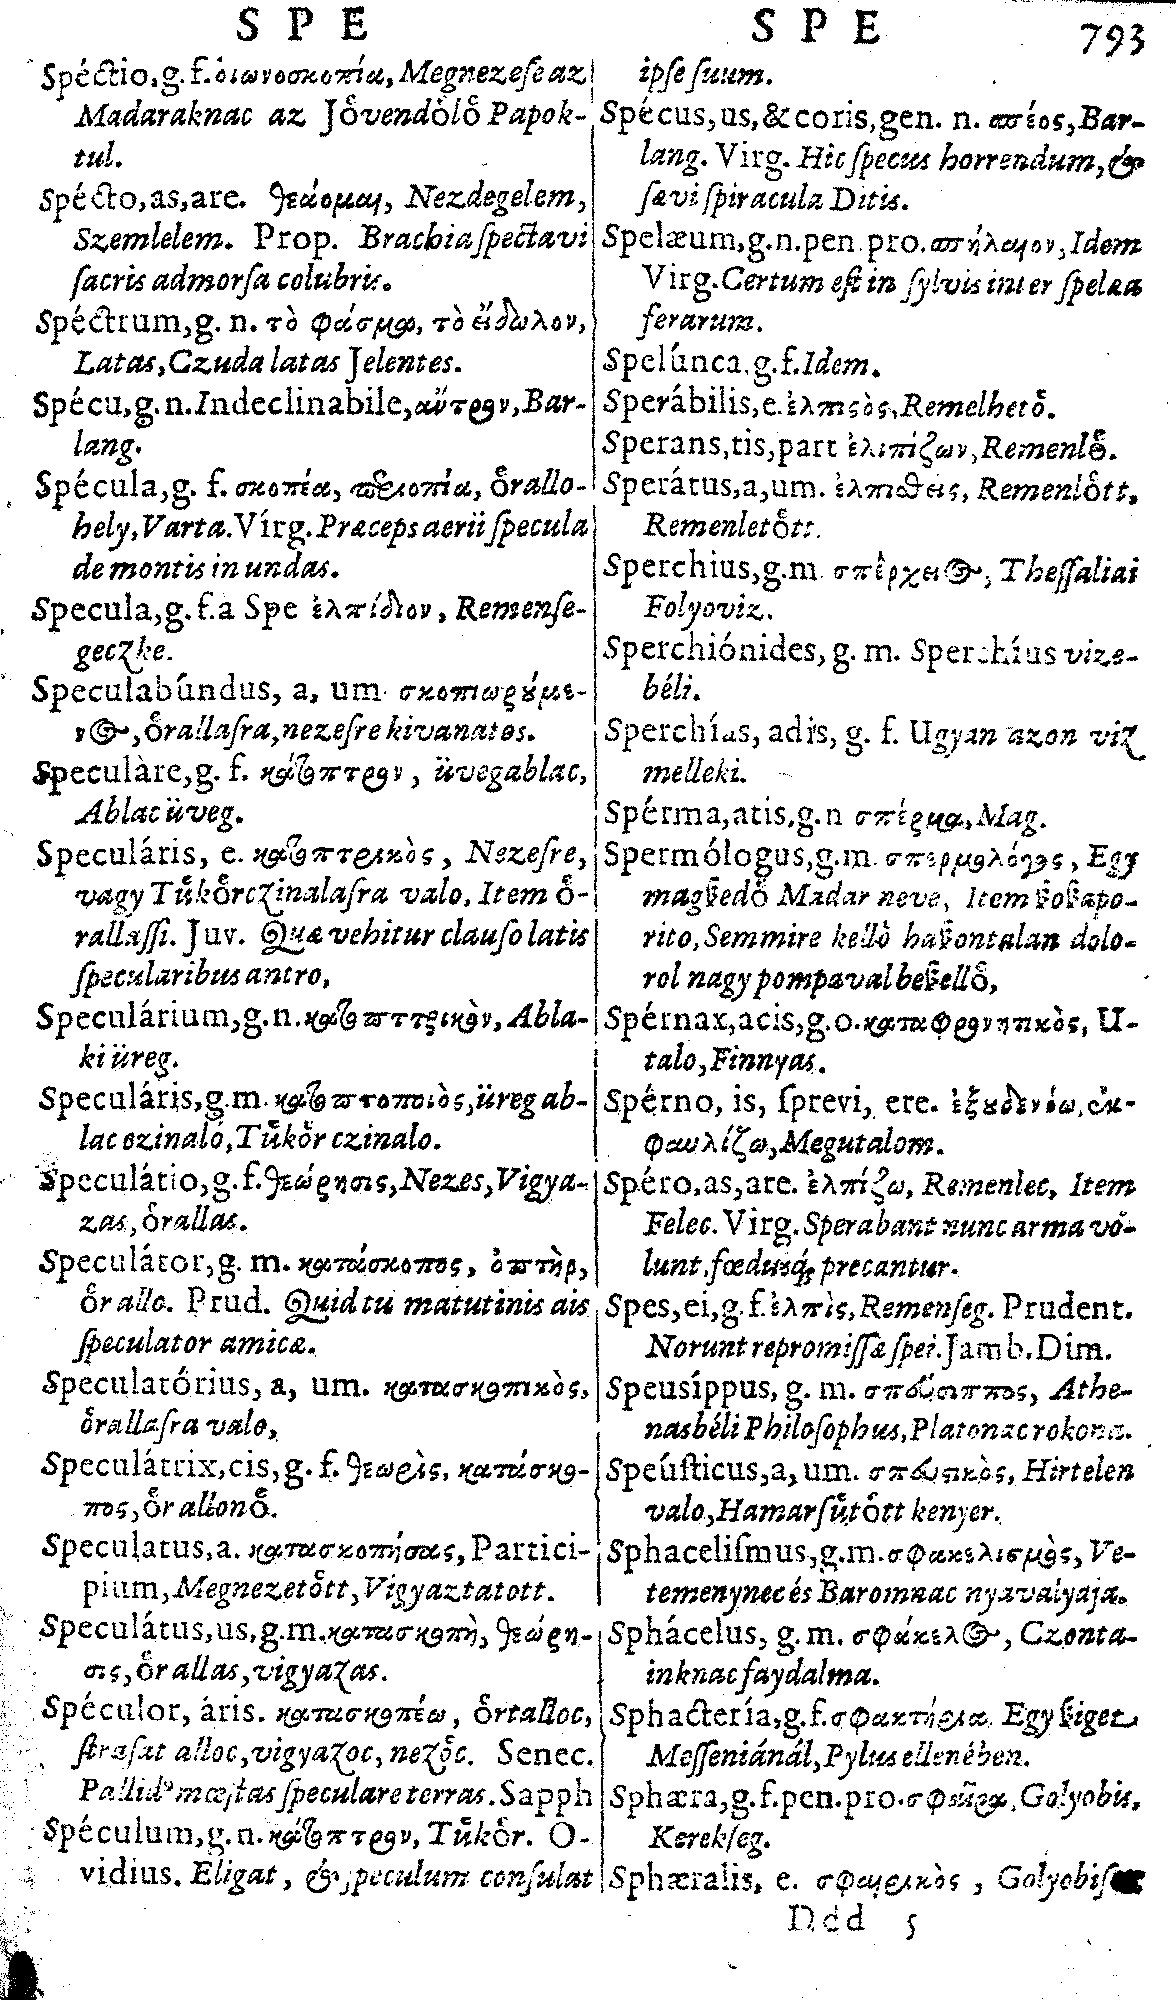 S P E
S P E
793
Spéctio, g. f. ὀιωνοσκοπία, Megnezeſe az
Madaraknac az Jo&#868;vendo&#868;lo&#868; Papok-
tul.
Spécto, as, are. θεάομαι, Nezdegelem,
Szemlelem. Prop. Brachia ſpectavi
ſacris admorſa colubris.
Spéctrum, g. n. τὸ φάσμα, τὸ εἴδωλον,
Latas, Czuda latas Jelentes.
Spécu, g. n. Indeclinabile, ἄντρον, Bar-
lang.
Spécula, g. f. σκοπέα, oͤrallo-
hely, Varta. Vírg. Præceps aerii ſpecula
de montis in undas.
Specula, g. f. a Spe ἐλπίδιον, Remenſe-
geczke.
Speculabúndus, a, um σκοπιωρούμε-
νος, oͤrallaſra, nezeſre kivanatos.
Speculàre, g. f. κάτοπτρον, üvegablac,
Ablac üveg.
Speculáris, e. κατοπτρικὸς, Nezeſre,
vagy Tuͤkoͤrczinalaſra valo, Item oͤ-
rallaſſi. Juv. Quæ vehitur clauſo latis
ſpecularibus antro,
Speculárium, g. n. κατοπτρικὸν, Abla-
ki üreg.
Speculáris, g. m. κατοπτοποιὸς, üreg ab-
lac czinaló, Tuͤkoͤr czinalo.
Speculátio, g. f. θεώρησις, Nezes, Vigya-
zas, oͤrallas.
Speculátor, g. m. κατάσκοπος, ὀπτὴρ,
oͤrallo. Prud. Quid tu matutinis ais
ſpeculator amicæ.
Speculatórius, a, um. κατασκοπικὸς,
oͤrallaſra valo,
Speculátrix, cis, g. f. θεωρὶς, κατάσκο-
πος, oͤrallonoͤ.
Speculatus, a. κατασκοπήσας, Partici-
pium, Megnezetoͤtt, Vigyaztatott.
Speculátus, us, g. m. κατασκοπὴ, θεώρη-
σις, oͤrallas, vigyazas.
Spéculor, áris. κατασκοπέω, oͤrtalloc,
ſtraſat alloc, vigyazoc, nezoͤc. Senec.
Pallidꝰ mœſtas ſpeculare terras. Sapph
Spéculum, g. n. κάτοπτρον, Tuͤkoͤr. O-
vidius. Eligat, & ſpeculum conſulat
ipſe ſuum.
Spécus, us, & coris, gen. n. σπέος, Bar-
lang. Virg. Hic ſpecus horrendum, &
ſævi ſpiracula Ditis.
Spelæum, g. n. pen pro. σπήλαιον, Idem
Virg. Certum eſt in ſylvis inter ſpelæa
ferarum.
Spelúnca, g. f. Idem.
Sperábilis, e. ἐλπιστὸς, Remelhetoͤ.
Sperans, tis, part ἐλπίζων, Remenloͤ.
Sperátus, a, um. ἐλπισθεὶς, Remenloͤtt,
Remenletoͤtt.
Sperchius, g. m σπέρχειος, Theſſaliai
Folyoviz.
Sperchiónides, g. m. Sperchíus vize-
béli.
Sperchías, adis, g. f. Ugyan azon viz
melleki.
Spérma, atis, g. n σπέρμα, Mag.
Spermólogus, g. m. σπερμολόγος, Egy
magſzedoͤ Madar neve, Item ſzoſzapo-
rito, Semmire kelloͤ haſzontalan dolo-
rol nagy pompaval beſzelloͤ,
Spérnax, acis, g. o. καταφρονητικὸς, U-
talo, Finnyas.
Spérno, is, ſprevi, ere. ἐξουδενέω, ἐκ-
φαυλίζω, Megutalom.
Spéro, as, are. ἐλπίζω, Remenlec, Item
Felec. Virg. Sperabant nunc arma vo-
lunt, fœduſq́; precantur.
Spes, ei, g. f. ἐλπὶς, Remenſeg. Prudent.
Norunt repromiſſæ ſpei. Jamb. Dim.
Speusíppus, g. m. σπεύσιππος, Athe-
nasbéli Philoſophus, Platonac rokona.
Speústicus, a, um. σπευστικὸς, Hirtelen
valo, Hamar ſuͤtoͤtt kenyer.
Sphaceliſmus, g. m. σφακελισμὸς, Ve-
temenynec és Baromnac nyavalyaja.
Sphácelus, g. m. σφάκελος, Czonta-
inknac faydalma.
Sphactería, g. f. σφακτήρια. Egy ſziget
Meſſeniánál, Pylus ellenében.
Sphæra, g. f. pen. pro. σφαῖρα, Golyobis,
Kerekſeg.
Sphæralis, e. σφαιρικὸς,
Ddd 5